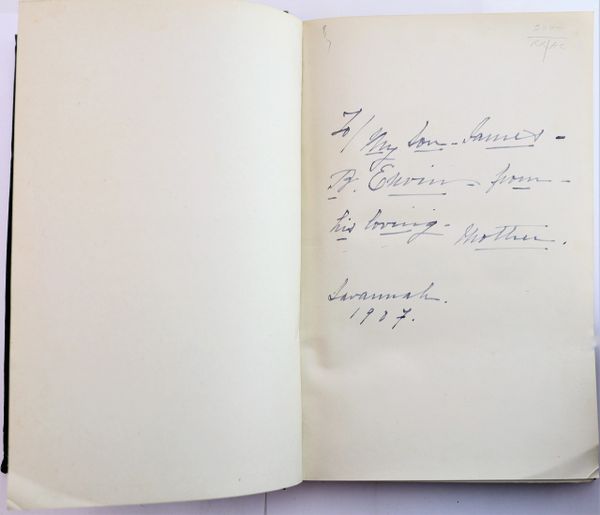 To/ My Son - James -
B. Erwin - from -
his loving - Mother.
Savannah.
1937.